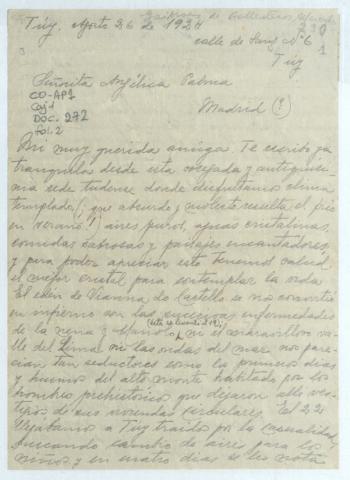 Túy, Agosto 26 de 1924
calle de Sanz Nº 6
Túy
Señorita Angélica Palma
Madrid (?)
CO-AP1
Caj 1
DOC. 272
fol. 2
Mi muy querida amiga. Te escribo ya
tranquila desde esta sosegada y antiquísi-
ma sede tudense donde disfrutamos clima
templado, (¡que absurdo y molesto resulta el frío
en verano!) aires puros, aguas cristalinas,
comidas sabrosas y paisajes encantadores
y para poder apreciar esto tenemos salud
el mejor cristal para contemplar la vida
El eden de Vianna do Castello se nos convirtió
en infierno con las sucesivas enfermedades
de la nena y Mario (éste se levantó el 19); ni el maravilloso va-
lle del Lima ni las ondas del mar nos pare-
cían tan seductores como los primeros días
y huimos del alto monte habitado por los
hombres prehistoricos que dejaron alli ves-
tigios de sus viviendas circulares. El 22
llegabamos a Tuy traidos por la casualidad,
buscando cambio de aires para los
niños y en cuatro dias se les nota